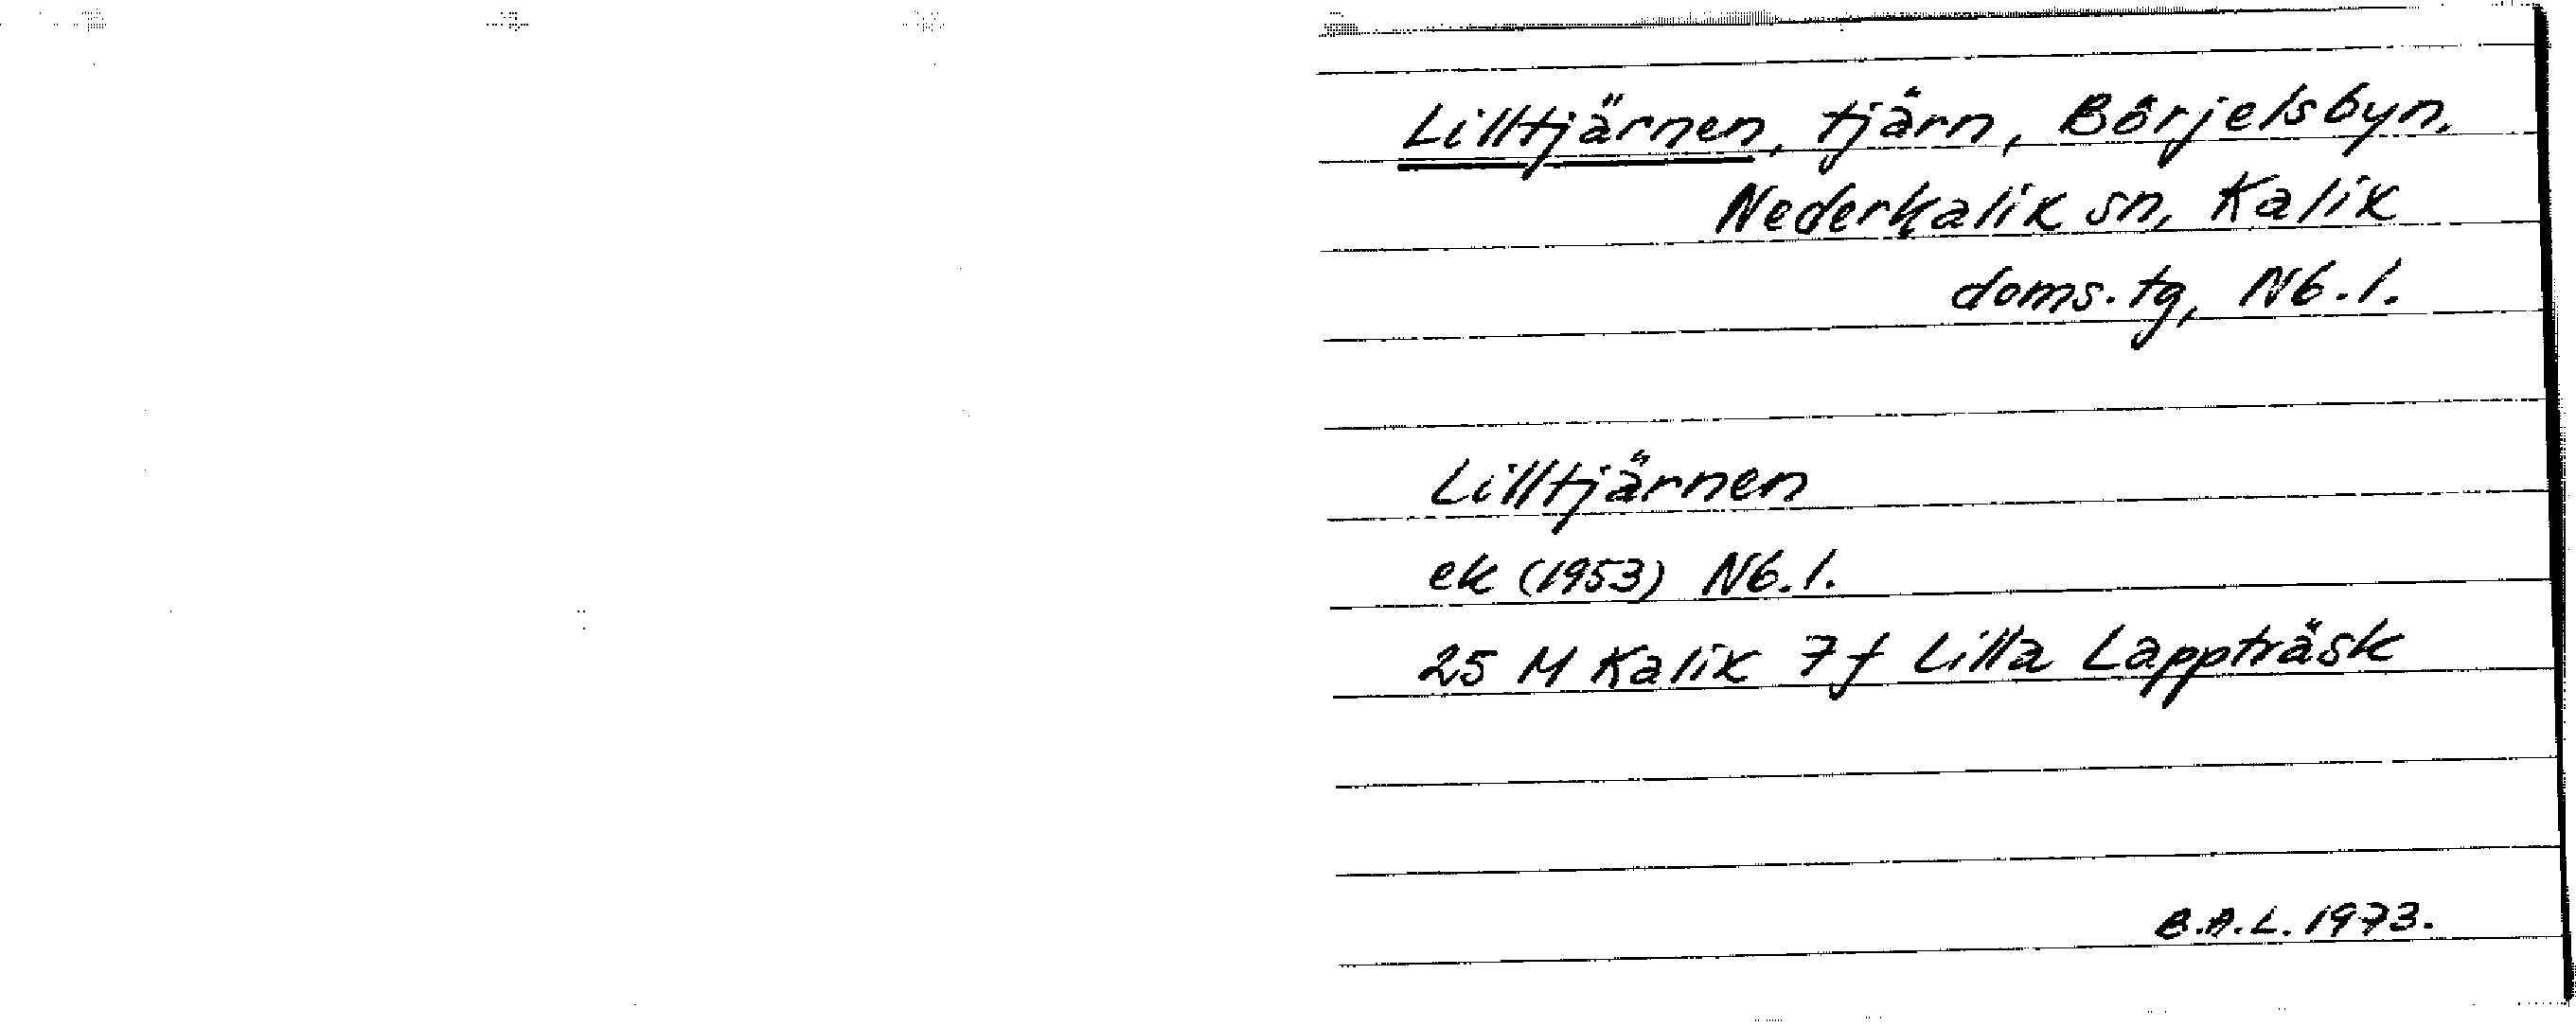 Lilltjärnen, tjärn, Börjelsbyn,
Nederkalix sn, Kalix
doms.tg, Nb.l.
Lilltjärnen
ek (1953) Nb.l.
25 M Kalix 7f Lilla Lappträsk
B.A.L. 1973.